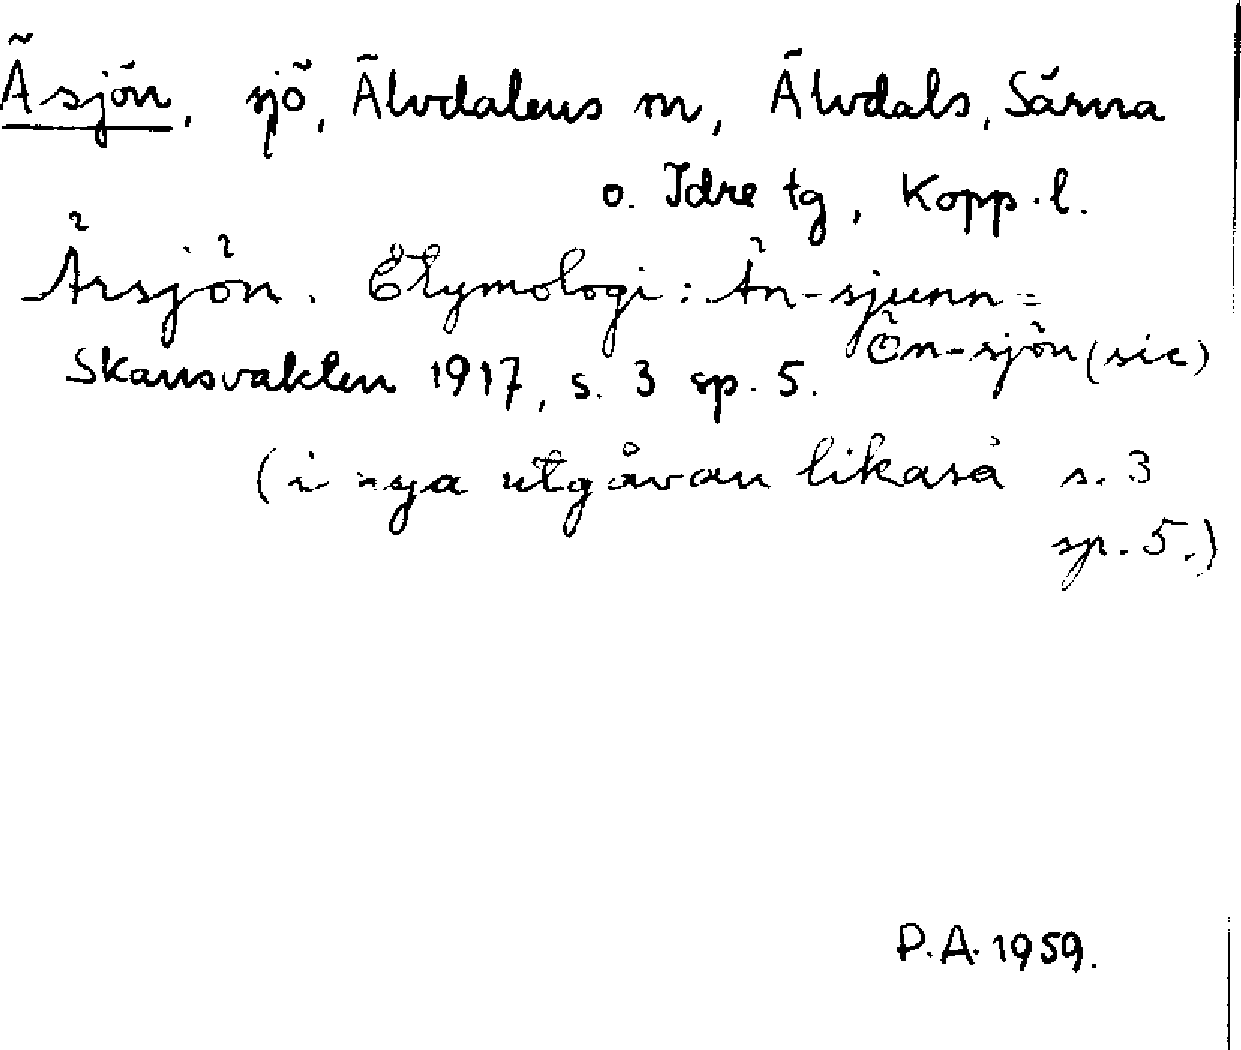 Äsjön, sjö, Älvdalens m, Älvdals, Särna
o. Idre tg, Kopp. l.
Ärsjön. Etymologi: Än-sjunn =
Ön-sjön (sic)
Skansvakten 1917, s. 3 sp. 5.
(i nya utgåvan likaså s. 3
sp. 5.)
P.A. 1959.